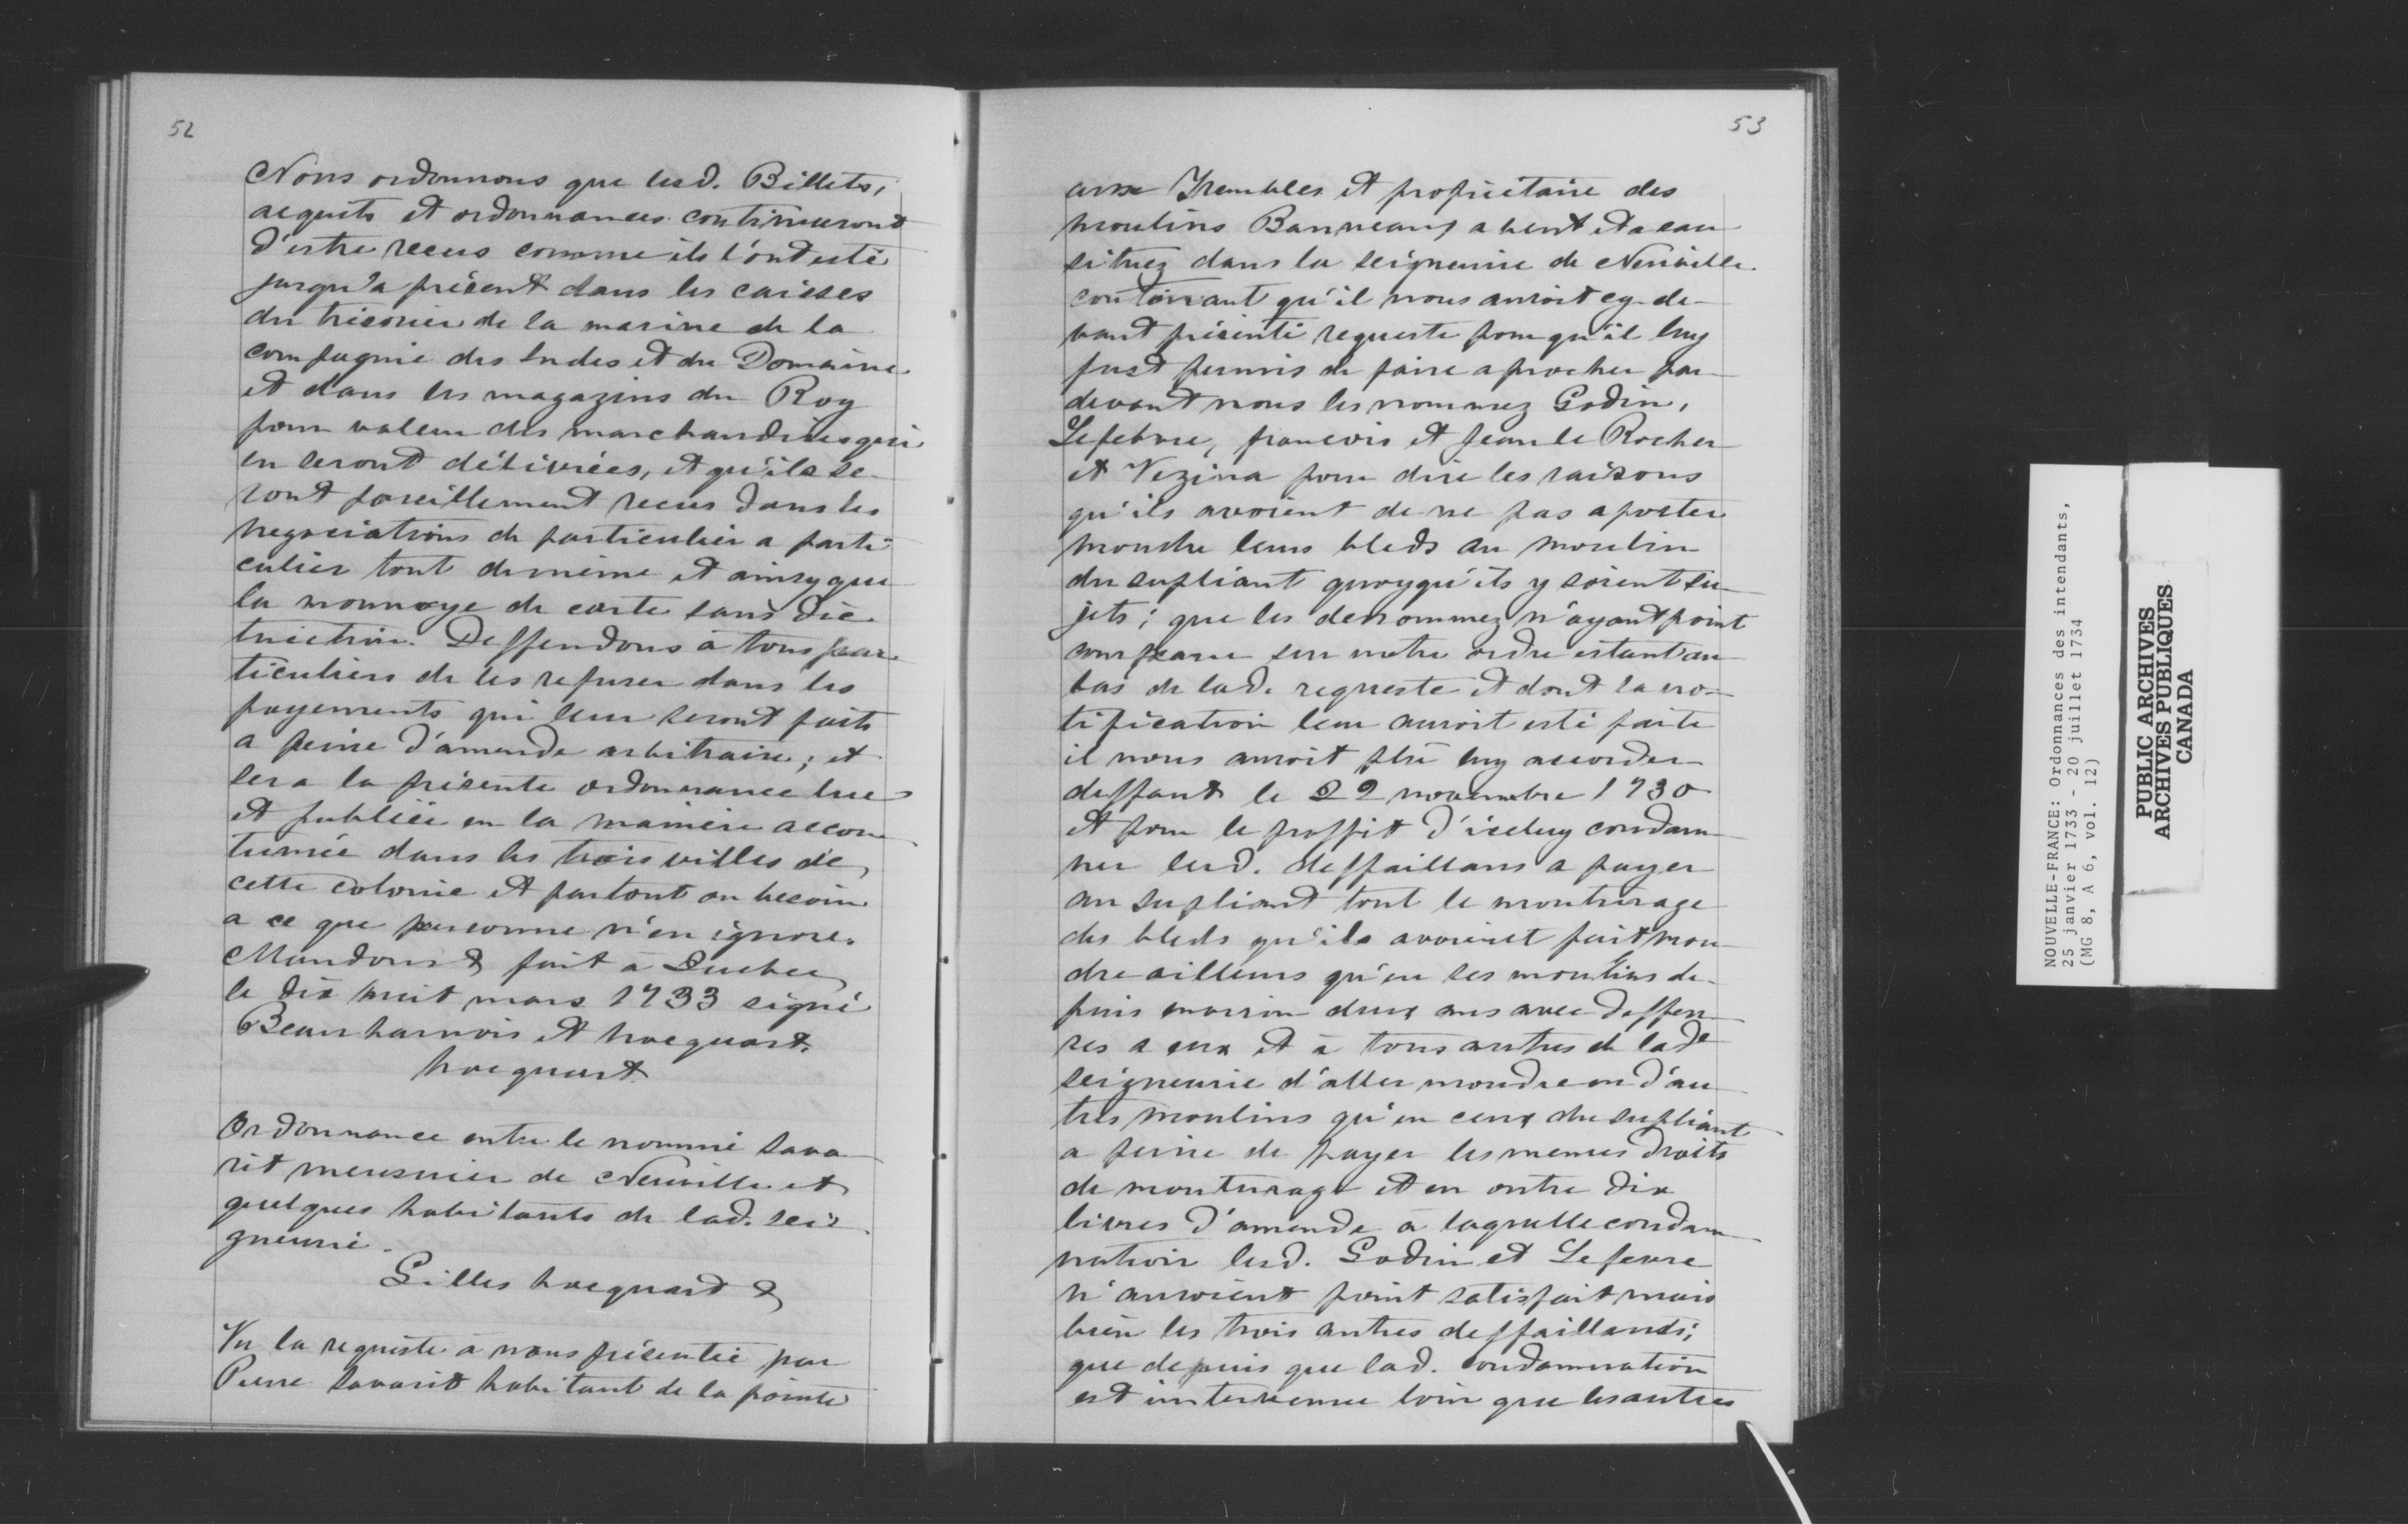 52
Nous ordonnons que lesd. Billets,
acquits et ordonnances continueront
d'estre receus comme ils l'ont esté
jusqu'a présent dans les caisses
du trésorier de la marine de la
compagnie des Indes et du Domaine
et dans les magazins du Roy
pour valeur des marchandises qui
en seront délivrées, et qu'ils se-
ront pareillement receus dans les
negociations de particulier a parti
culier tout de même et ainsy que
la monnoye de carte sans dis-
tinction. Deffendons à tous par
ticuliers de les refuser dans les
payements qui leur seront faits
a peine d'amende arbitraire; et
sera la présente ordonnance lue
et publiée en la manière accou
tumée dans les trois villes de
cette colonie et partout ou besoin
a ce que personne n'en ignore.
Mandons & fait à Quebec
le dix huit mars 1733 signé
Beauharnois et hocquart.
hocquart
Ordonnance entre le nommé Sava
rit meusnier de Neuville et
quelques habitants de lad. sei-
gneurie.
Gilles hocquart &
Vu la requeste à nous présentée par
Pierre Savarit habitant de la pointe
53
aux Trembles et propriétaire des
moulins Banneaux a vent et a eau
situez dans la seigneurie de Neuville
contenant qu'il nous auroit cy de-
vant présenté requeste pour qu'il luy
fust permis de faire aprocher par
devant nous les nommez Godin,
Lefebvre, francois et Jean le Rocher
et Vezina pour dire les raisons
qu'ils avoient de ne pas aporter
moudre leurs bleds au moulin
du supliant quoyqu'ils y soient su-
jets; que les denommez n'ayant point
comparu sur notre ordre estant au
bas de lad. requeste et dont la no-
tification leur auroit esté faite
il nous auroit plu luy accorder
deffaut le 22 novembre 1730
et pour le proffit d'iceluy condam
ner lesd. deffaillans a payer
au supliant tout le mouturage
des bleds qu'ils avoient fait mou
dre ailleurs qu'en ses moulins de-
puis environ deux ans avec deffen
ses a eux et à tous autres de lade
seigneurie d'aller moudre en d'au
tres moulins qu'en ceux du supliant
a peine de payer les memes droits
de mouturage et en outre dix
livres d'amende à laquelle condam
nation lesd. Godin et Lefevre
n'auroient point satisfait mais
bien les trois autres deffaillants;
que depuis que lad. condamnation
est intervenue loin que les autres
NOUVELLE-FRANCE: Ordonnances des intendants,
25 janvier 1733 - 20 juillet 1734
(MG 8, A 6, vol. 12)
PUBLIC ARCHIVES
ARCHIVES PUBLIQUES
CANADA